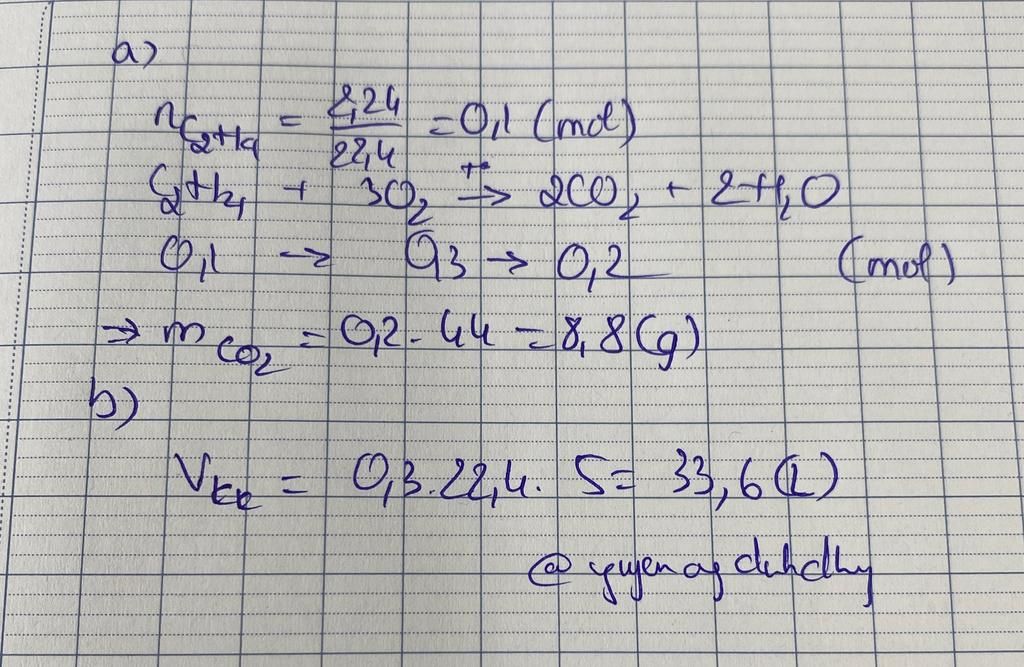 a)
nC₂H₄ = 2,24/22,4 = 0,1 (mol)
C₂H₄ + 3O₂ t°→ 2CO₂ + 2H₂O
0,1 → 0,3 → 0,2 (mol)
→ mCO₂ = 0,2 . 44 = 8,8 (g)
b)
Vkk = 0,3 . 22,4 . 5 = 33,6 (L)
@